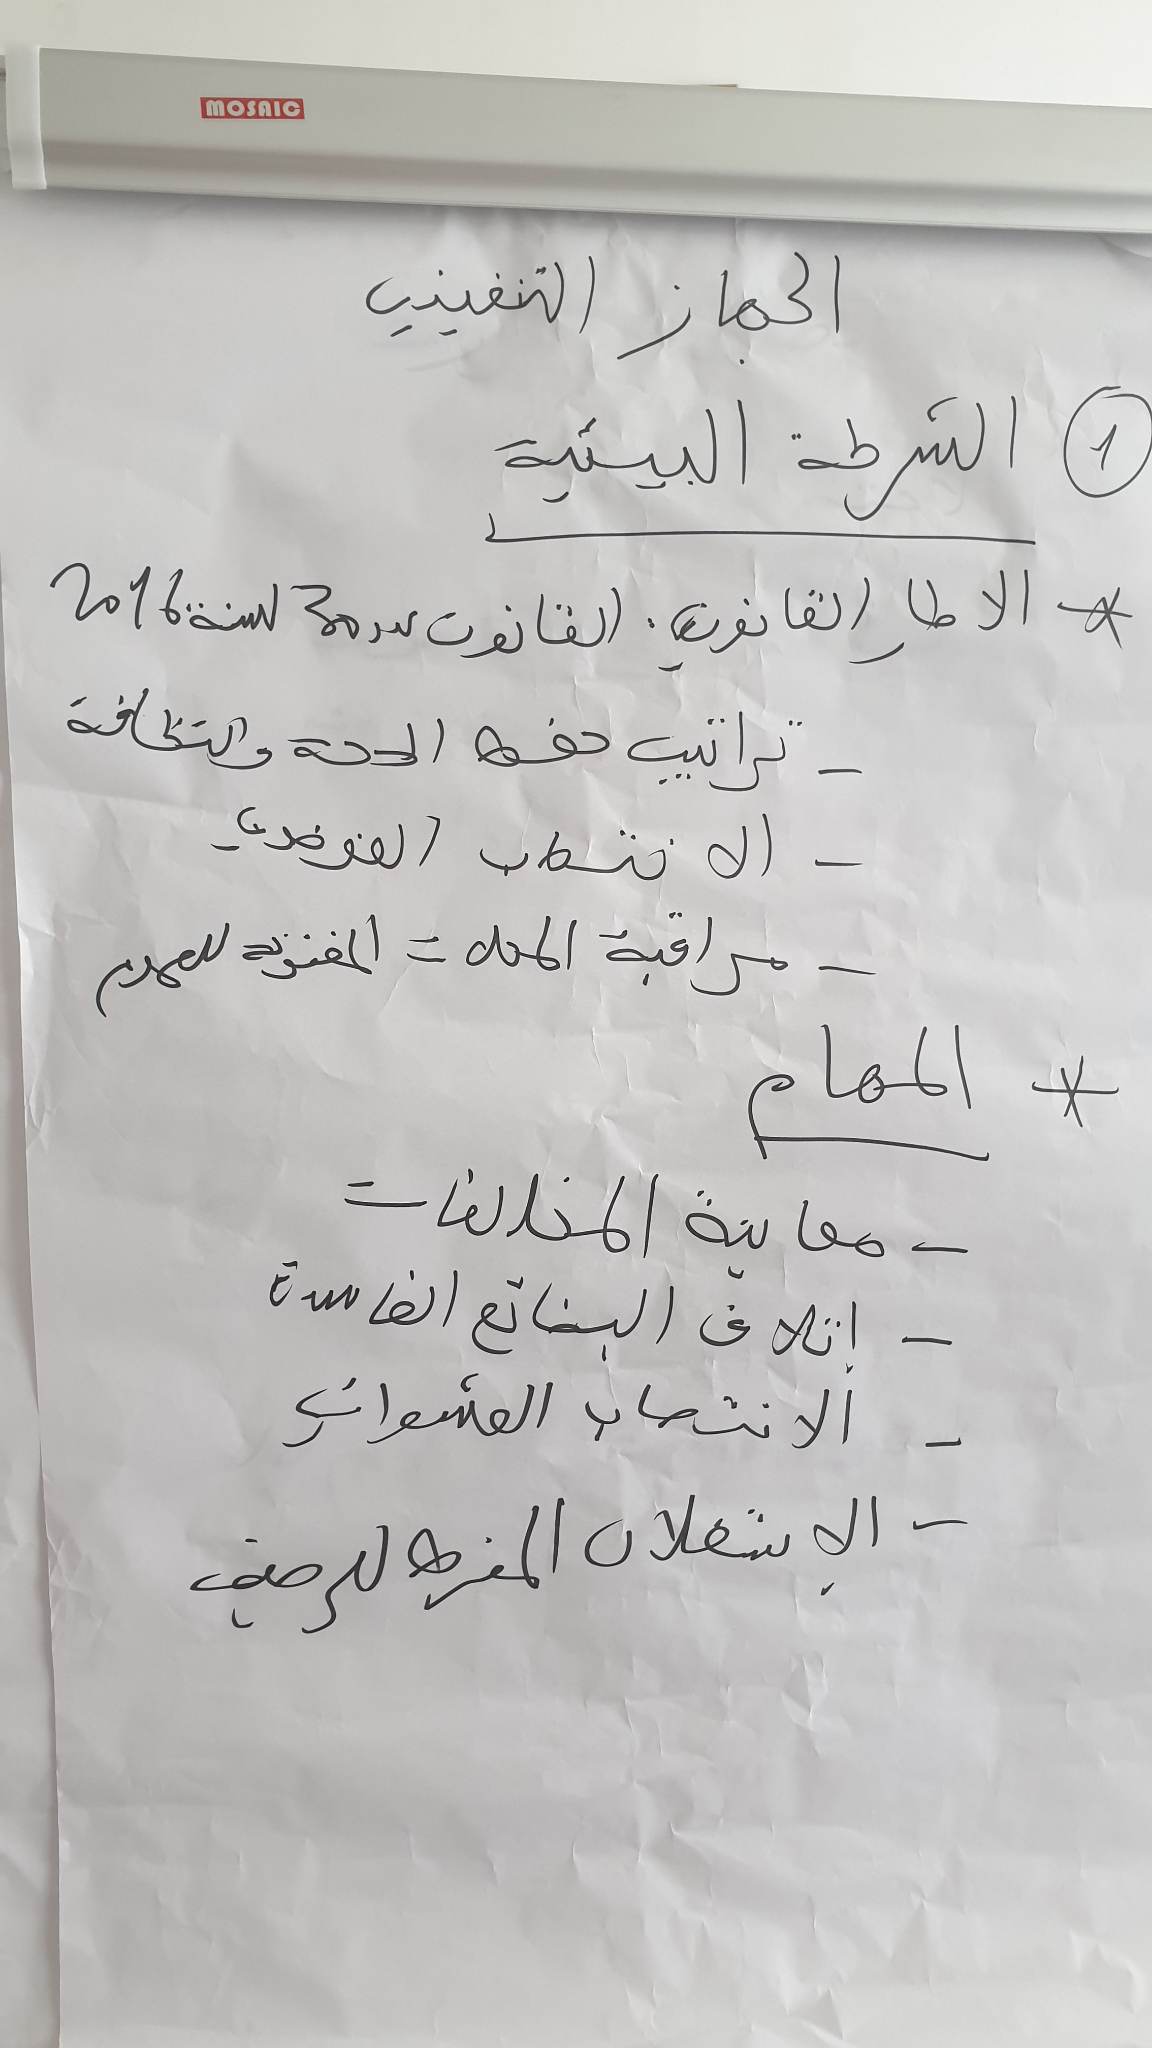 MOSAIC
الجهاز التنفيذي
1 الشرطة البيئية
* الاطار القانوني: القانون عدد 30 لسنة 2016
- تراتيب حفظ الصحة والنظافة
- الانتصاب الفوضوي
- مراقبة المحلات المفتوحة للعموم
* المهام
- معاينة المخالفات
- إتلاف البضائع الفاسدة
- الانتصاب العشوائي
- الإستغلال المفرط للرصيف